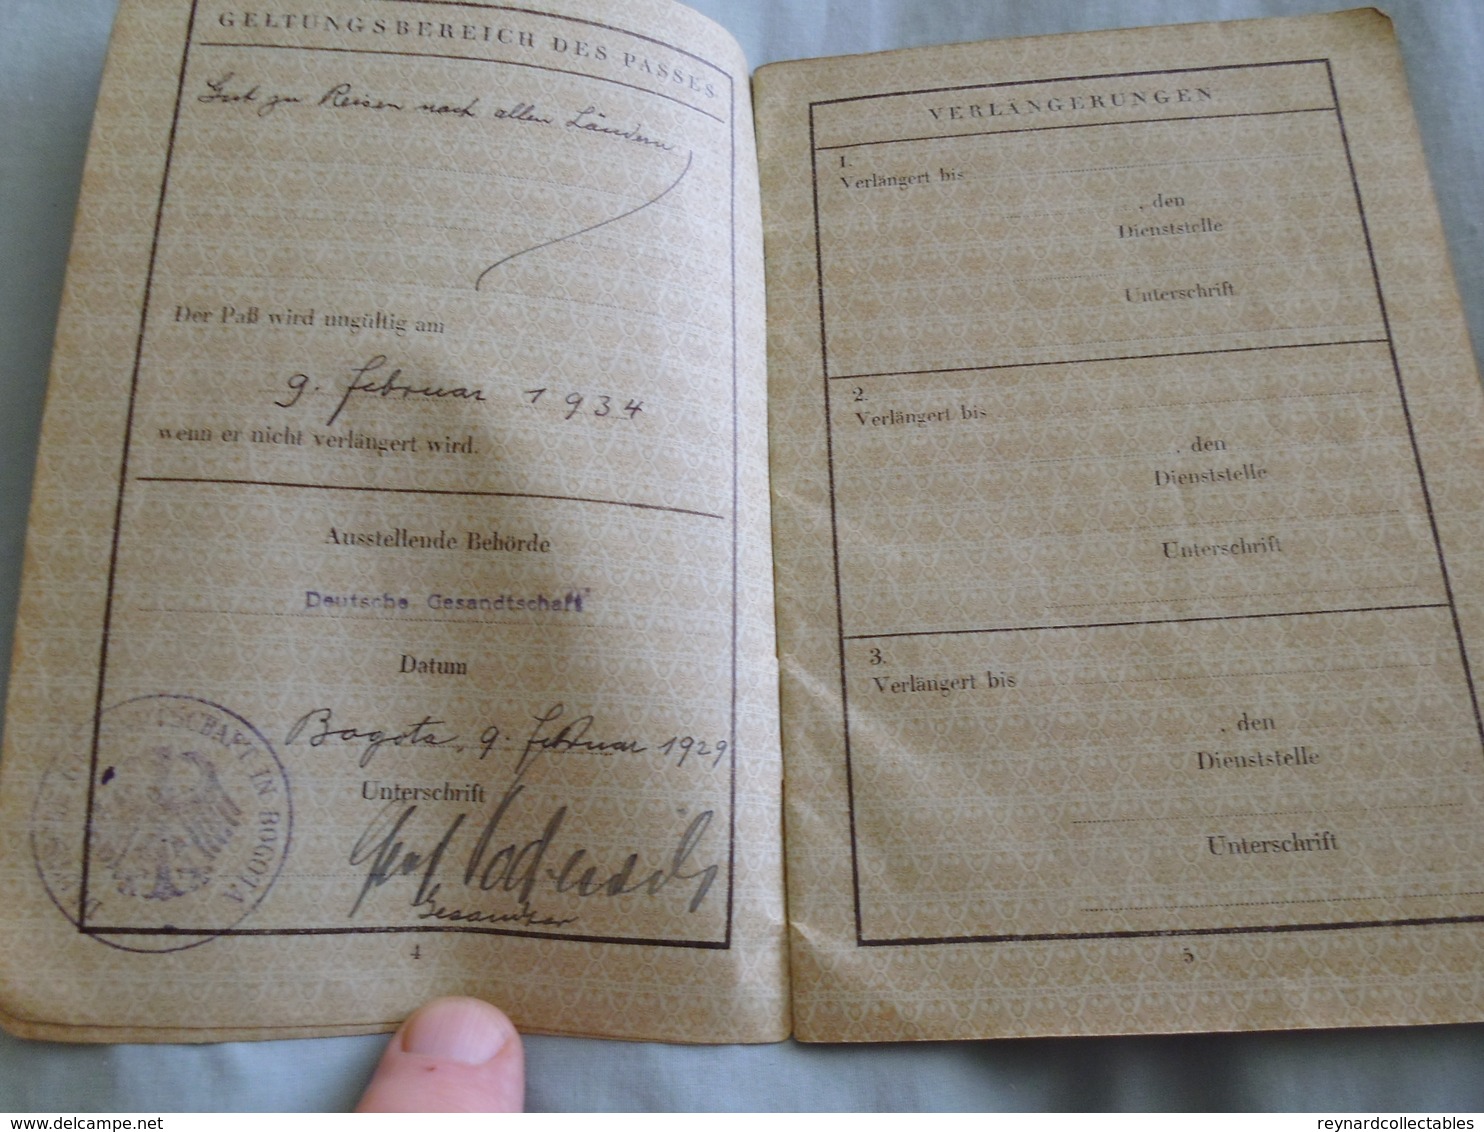 GELTUNGSBEREICH DES PASSES
Gut zu Reisen nach allen Ländern
Der Paß wird ungültig am
9. Februar 1934
wenn er nicht verlängert wird.
Ausstellende Behörde
Deutsche Gesandtschaft
Datum
Bogota, 9. Februar 1929
Unterschrift
Gesandter
DEUTSCHE GESANDTSCHAFT IN BOGOTA
4
VERLÄNGERUNGEN
1.
Verlängert bis
, den
Dienststelle
Unterschrift
2.
Verlängert bis
, den
Dienststelle
Unterschrift
3.
Verlängert bis
, den
Dienststelle
Unterschrift
5
www.delcampe.net
reynardcollectables